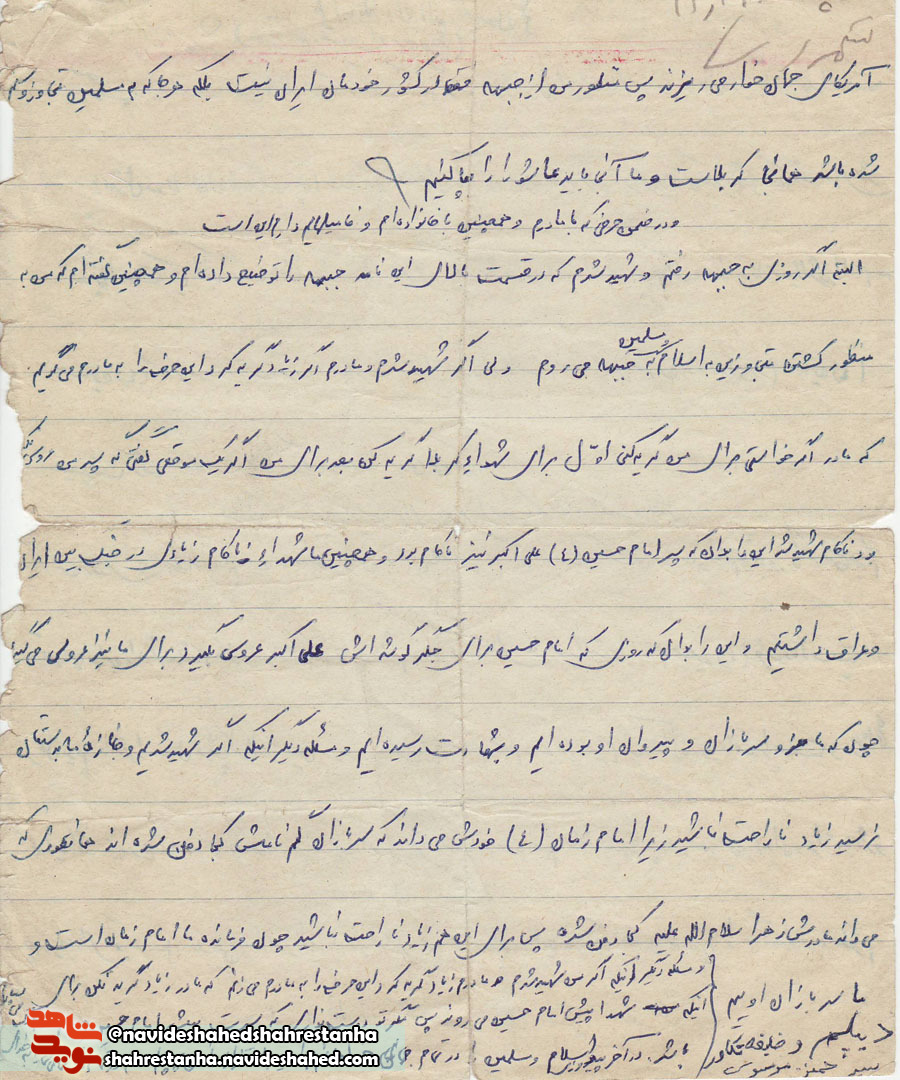 آمریکای جهان خوار می ریزند پس منظور من از جبهه فقط در کشور خودمان ایران نیست بلکه هر جا که به مسلمین تجاوز
شده باشد همانجا کربلاست و ما آنی باید عاشورا را بپا کنیم
و در ضمن حرفی که با مادرم و همچنین با خانواده ام و فامیلهایم دارم این است
البته اگر روزی به جبهه رفتم و شهید شدم که در قسمت بالای این نامه جبهه را توضیح داده ام و همچنین گفته ام که من به
منظور کشتن متجاوزین به اسلام و مسلمین به جبهه می روم ولی اگر شهید شدم و مادرم اگر زیاد گریه کرد این حرف را به مادرم می گویم
که مادر اگر خواستی برای من گریه کنی اول برای شهداء کربلا گریه کن بعد برای من اگر یک موقعی گفتی که پسر من
بود ناکام شهید شد این را بدان که پسر امام حسین (ع) علی اکبر نیز ناکام بود و همچنین ما شهداء ناکام زیادی در جنگ بین ایران
و عراق داشتیم و این را بدان که روزی که امام حسین برای جگر گوشه اش علی اکبر عروسی بگیرد برای ما نیز عروسی می گیرد
چون که ما جزو سربازان و پیروان او بوده ایم و بشهادت رسیده ایم و مسئله دیگر اینکه اگر شهید شدیم و جنازه ما بدستتان
نرسید زیاد ناراحت نباشید زیرا امام زمان (ع) خودش می داند که سربازان گم نامش کجا دفن شده اند همانطوری که
می داند مادرش زهرا سلام الله علیه کجا دفن شده پس برای این هم زیاد ناراحت نباشید چون فرمانده ما امام زمان است و
ما سربازان اوییم
و مسئله دیگر اینکه اگر من شهید شدم و مادرم زیاد گریه کرد این حرف را به مادرم می زنم که مادر زیاد گریه نکن برای
اینکه شهدا پیش امام حسین می روند پس مگر تو دوست نداری که پسرت پیش امام حسین
باشد. در آخر پیروزی اسلام و مسلمین را در تمام
شاهد
نوید
@navideshahedshahrestanha
shahrestanha.navideshahed.com